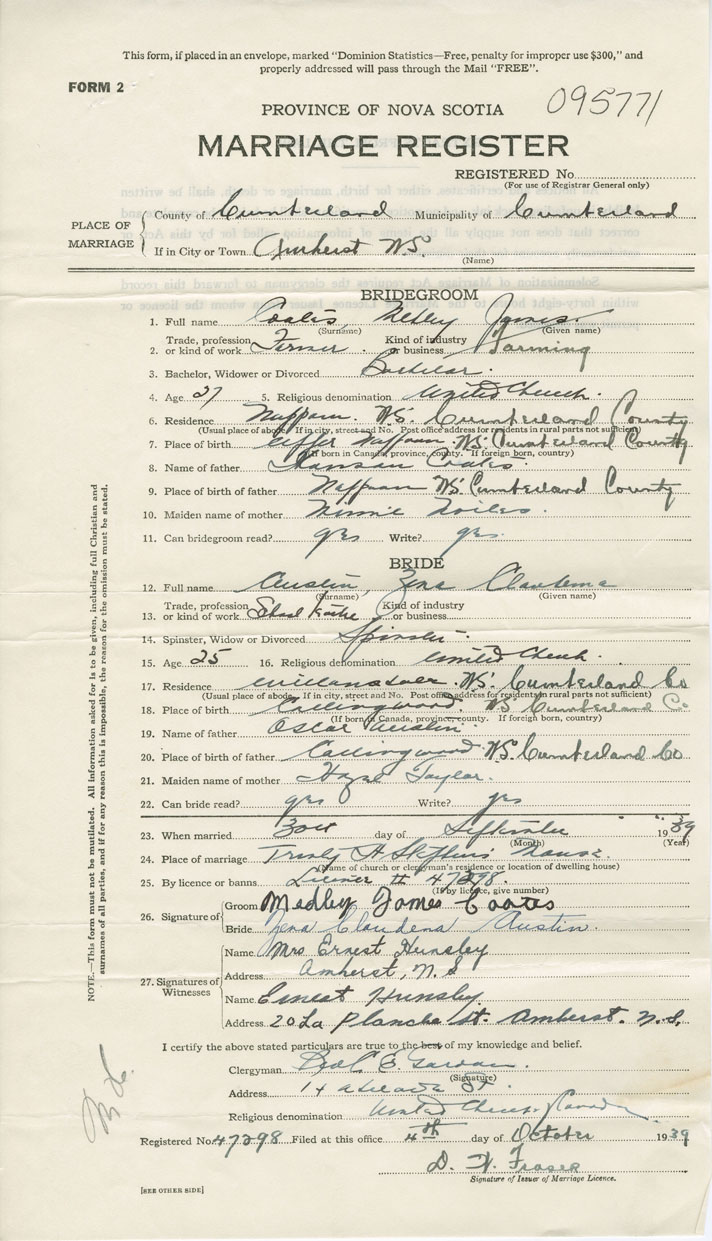 This form, if placed in an envelope, marked "Dominion Statistics—Free, penalty for improper use $300," and
properly addressed will pass through the Mail "FREE".
FORM 2
095771
PROVINCE OF NOVA SCOTIA
MARRIAGE REGISTER
REGISTERED No.
(For use of Registrar General only)
PLACE OF MARRIAGE
County of Cumberland Municipality of Cumberland
If in City or Town Amherst N.S.
(Name)
BRIDEGROOM
1. Full name Coates, Medley James
(Surname) (Given name)
2. Trade, profession or kind of work Farmer. Kind of industry or business Farming
3. Bachelor, Widower or Divorced Bachelor.
4. Age 27 5. Religious denomination United Church.
6. Residence Nappan. N.S. Cumberland County
(Usual place of abode. If in city, street and No. Post office address for residents in rural parts not sufficient)
7. Place of birth Nappan N.S. Cumberland County
(If born in Canada, province, county. If foreign born, country)
8. Name of father Coates.
9. Place of birth of father Nappan N.S. Cumberland County
10. Maiden name of mother Minnie Noiles.
11. Can bridegroom read? yes Write? yes.
BRIDE
12. Full name Austin, Zena Claudena
(Surname) (Given name)
13. Trade, profession or kind of work Kind of industry or business
14. Spinster, Widow or Divorced Spinster.
15. Age 25 16. Religious denomination United Church.
17. Residence N.S. Cumberland Co
(Usual place of abode. If in city, street and No. Post office address for residents in rural parts not sufficient)
18. Place of birth Collingwood. N.S. Cumberland Co
(If born in Canada, province, county. If foreign born, country)
19. Name of father Oscar Austin.
20. Place of birth of father Collingwood N.S. Cumberland Co
21. Maiden name of mother Hazel Taylor.
22. Can bride read? yes Write? yes
23. When married day of September 1939
(Month) (Year)
24. Place of marriage Trinity St Stephens house.
(Name of church or clergyman's residence or location of dwelling house)
25. By licence or banns Licence # 47298.
(If by licence, give number)
26. Signature of
Groom Medley James Coates
Bride Zena Claudena Austin.
27. Signatures of Witnesses
Name Mrs Ernest Hunsley
Address Amherst, N.S
Name Ernest Hunsley
Address 20 La Planche St. Amherst. N.S.
I certify the above stated particulars are true to the best of my knowledge and belief.
Clergyman
(Signature)
Address 14
Religious denomination United Church of Canada
Registered No. 47298 Filed at this office 4th day of October 1939
D. W. Fraser
Signature of Issuer of Marriage Licence.
[SEE OTHER SIDE]
NOTE.—This form must not be mutilated. All information asked for is to be given, including full Christian and
surnames of all parties, and if for any reason this is impossible, the reason for the omission must be stated.